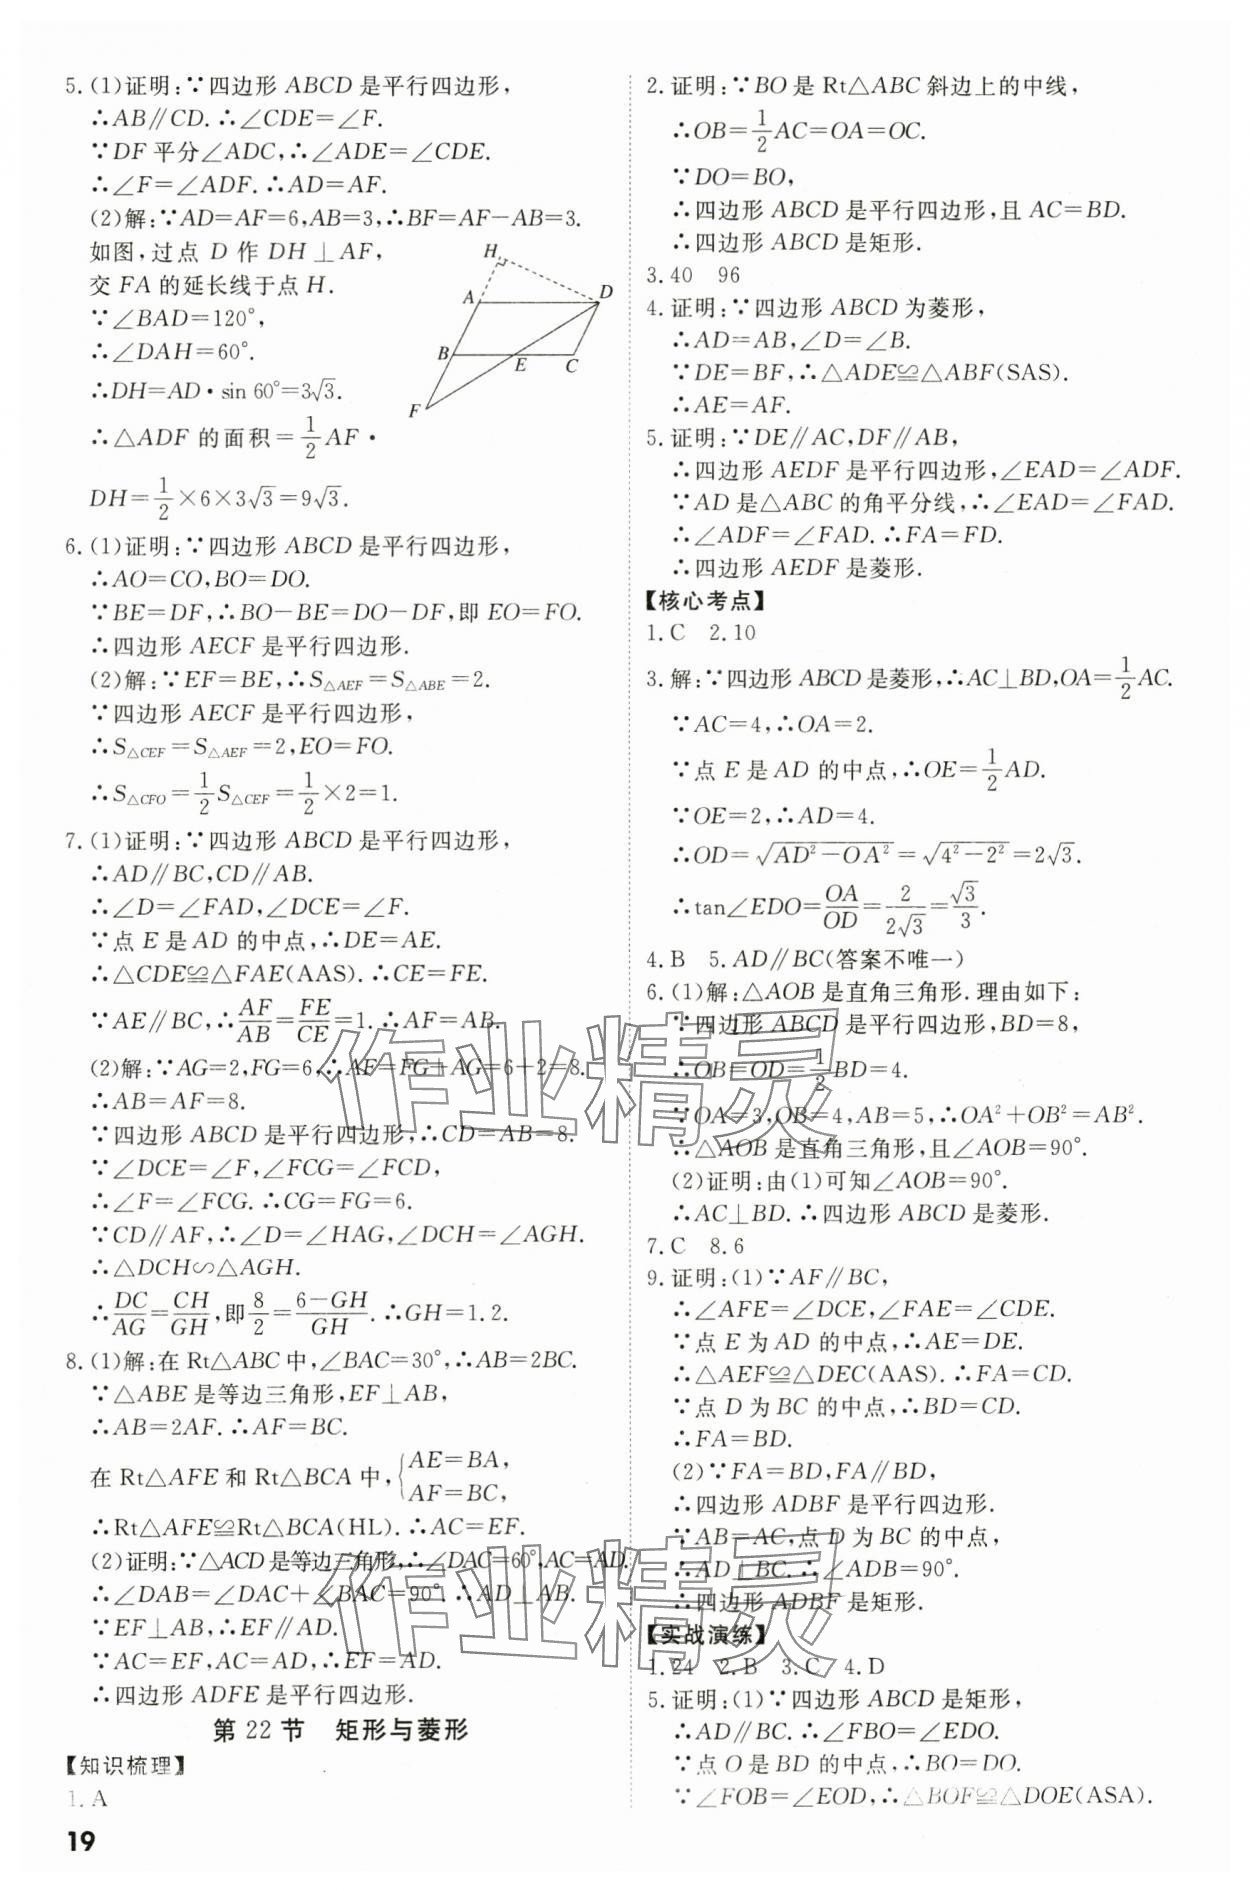 5.(1)证明:∵四边形 ABCD 是平行四边形,
∴AB∥CD.∴∠CDE=∠F.
∵DF 平分∠ADC,∴∠ADE=∠CDE.
∴∠F=∠ADF.∴AD=AF.
(2)解:∵AD=AF=6,AB=3,∴BF=AF-AB=3.
如图,过点 D 作 DH⊥AF,
交 FA 的延长线于点 H.
∵∠BAD=120°,
∴∠DAH=60°.
∴DH=AD·sin 60°=3√3.
∴△ADF 的面积=1/2 AF·
DH=1/2×6×3√3=9√3.
H
A
D
B
E
C
F
6.(1)证明:∵四边形 ABCD 是平行四边形,
∴AO=CO,BO=DO.
∵BE=DF,∴BO-BE=DO-DF,即 EO=FO.
∴四边形 AECF 是平行四边形.
(2)解:∵EF=BE,∴S△AEF=S△ABE=2.
∵四边形 AECF 是平行四边形,
∴S△CEF=S△AEF=2,EO=FO.
∴S△CFO=1/2 S△CEF=1/2×2=1.
7.(1)证明:∵四边形 ABCD 是平行四边形,
∴AD∥BC,CD∥AB.
∴∠D=∠FAD,∠DCE=∠F.
∵点 E 是 AD 的中点,∴DE=AE.
∴△CDE≌△FAE(AAS).∴CE=FE.
∵AE∥BC,∴AF/AB=FE/CE=1.∴AF=AB.
(2)解:∵AG=2,FG=6,∴AF=FG+AG=6+2=8.
∴AB=AF=8.
∵四边形 ABCD 是平行四边形,∴CD=AB=8.
∵∠DCE=∠F,∠FCG=∠FCD,
∴∠F=∠FCG.∴CG=FG=6.
∵CD∥AF,∴∠D=∠HAG,∠DCH=∠AGH.
∴△DCH∽△AGH.
∴DC/AG=CH/GH,即8/2=(6-GH)/GH.∴GH=1.2.
8.(1)解:在 Rt△ABC 中,∠BAC=30°,∴AB=2BC.
∵△ABE 是等边三角形,EF⊥AB,
∴AB=2AF.∴AF=BC.
在 Rt△AFE 和 Rt△BCA 中,{AE=BA,
AF=BC,
∴Rt△AFE≌Rt△BCA(HL).∴AC=EF.
(2)证明:∵△ACD 是等边三角形,∴∠DAC=60°,AC=AD.
∴∠DAB=∠DAC+∠BAC=90°.∴AD⊥AB.
∵EF⊥AB,∴EF∥AD.
∵AC=EF,AC=AD,∴EF=AD.
∴四边形 ADFE 是平行四边形.
第 22 节 矩形与菱形
【知识梳理】
1.A
19
2.证明:∵BO 是 Rt△ABC 斜边上的中线,
∴OB=1/2 AC=OA=OC.
∵DO=BO,
∴四边形 ABCD 是平行四边形,且 AC=BD.
∴四边形 ABCD 是矩形.
3.40 96
4.证明:∵四边形 ABCD 为菱形,
∴AD=AB,∠D=∠B.
∵DE=BF,∴△ADE≌△ABF(SAS).
∴AE=AF.
5.证明:∵DE∥AC,DF∥AB,
∴四边形 AEDF 是平行四边形,∠EAD=∠ADF.
∵AD 是△ABC 的角平分线,∴∠EAD=∠FAD.
∴∠ADF=∠FAD.∴FA=FD.
∴四边形 AEDF 是菱形.
【核心考点】
1.C 2.10
3.解:∵四边形 ABCD 是菱形,∴AC⊥BD,OA=1/2 AC.
∵AC=4,∴OA=2.
∵点 E 是 AD 的中点,∴OE=1/2 AD.
∵OE=2,∴AD=4.
∴OD=√(AD²-OA²)=√(4²-2²)=2√3.
∴tan∠EDO=OA/OD=2/(2√3)=√3/3.
4.B 5.AD∥BC(答案不唯一)
6.(1)解:△AOB 是直角三角形.理由如下:
∵四边形 ABCD 是平行四边形,BD=8,
∴OB=OD=1/2 BD=4.
∵OA=3,OB=4,AB=5,∴OA²+OB²=AB².
∴△AOB 是直角三角形,且∠AOB=90°.
(2)证明:由(1)可知∠AOB=90°.
∴AC⊥BD.∴四边形 ABCD 是菱形.
7.C 8.6
9.证明:(1)∵AF∥BC,
∴∠AFE=∠DCE,∠FAE=∠CDE.
∵点 E 为 AD 的中点,∴AE=DE.
∴△AEF≌△DEC(AAS).∴FA=CD.
∵点 D 为 BC 的中点,∴BD=CD.
∴FA=BD.
(2)∵FA=BD,FA∥BD,
∴四边形 ADBF 是平行四边形.
∵AB=AC,点 D 为 BC 的中点,
∴AD⊥BC.∴∠ADB=90°.
∴四边形 ADBF 是矩形.
【实战演练】
1.24 2.B 3.C 4.D
5.证明:(1)∵四边形 ABCD 是矩形,
∴AD∥BC.∴∠FBO=∠EDO.
∵点 O 是 BD 的中点,∴BO=DO.
∵∠FOB=∠EOD,∴△BOF≌△DOE(ASA).
作业精灵
作业精灵